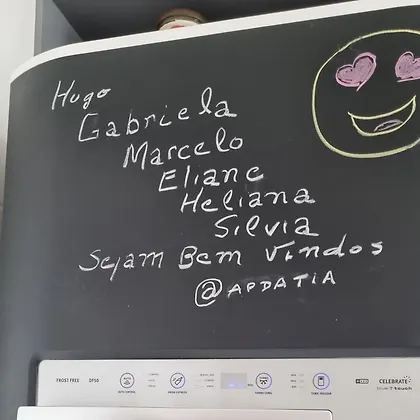 Hugo
Gabriela
Marcelo
Eliane
Heliana
Silvia
Sejam Bem Vindos
@APDATIA
FROST FREE DF50 CELEBRATE
blue touch